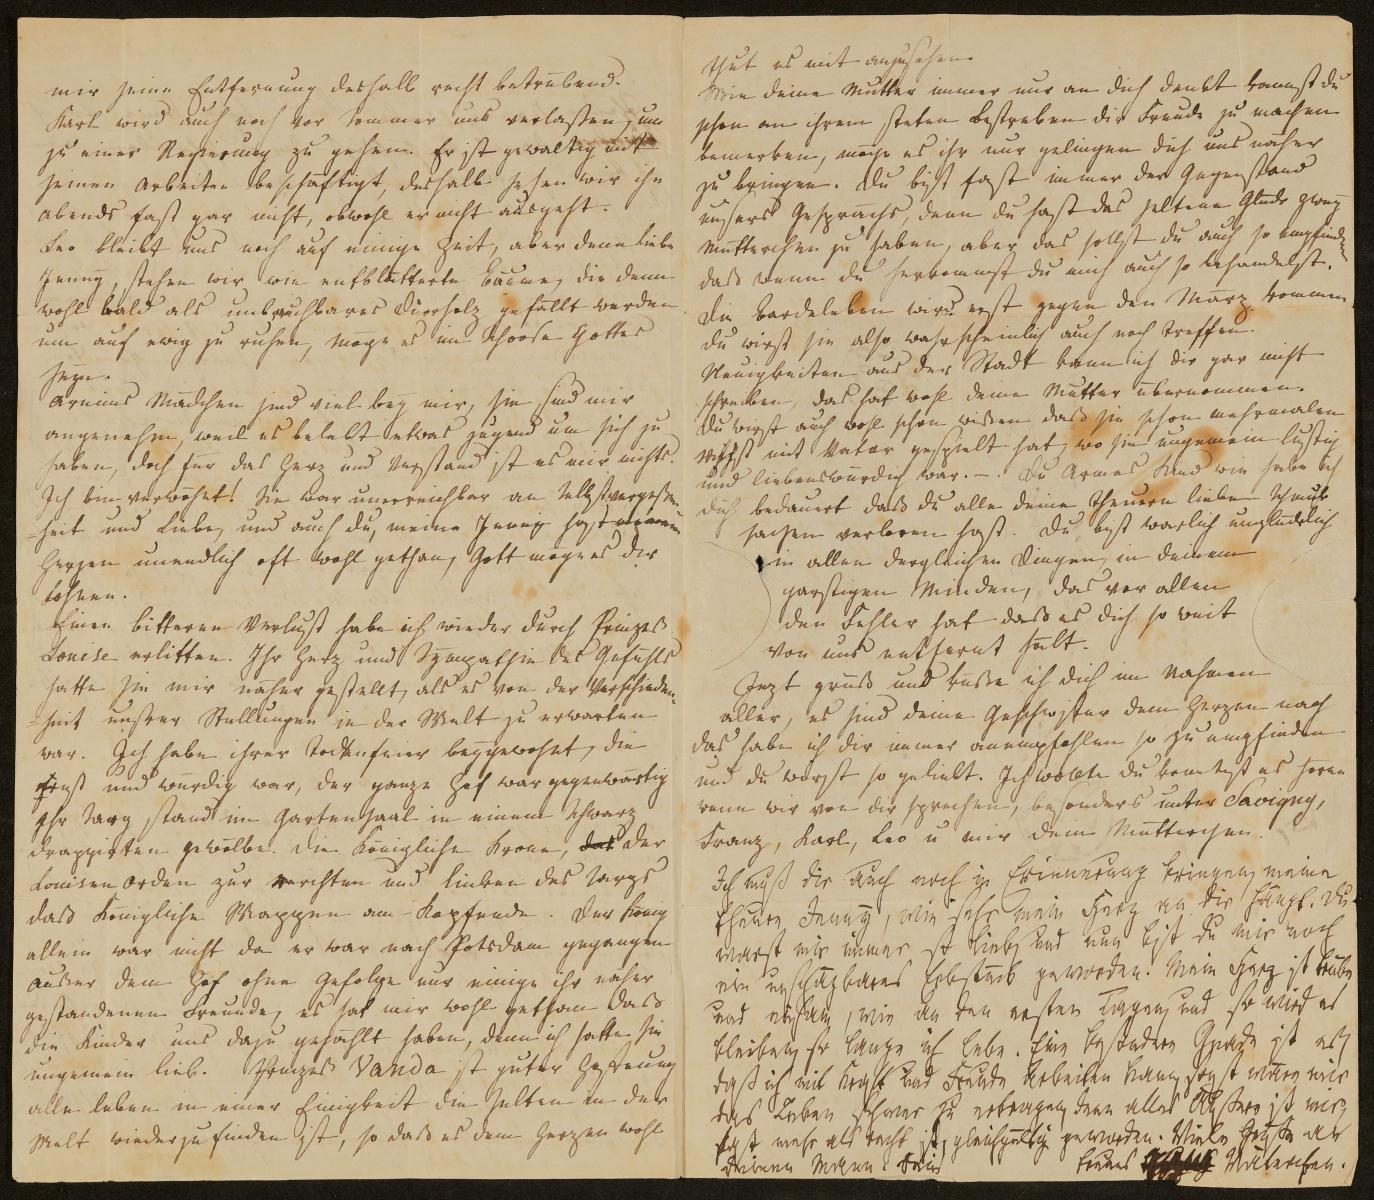 mir seine Entfernung deshalb recht betrübend.
Karl wird auch noch vor Sommer uns verlassen, um
zu einer Regierung zu gehen. Er ist gewaltig mit
seinen Arbeiten beschäftigt, deshalb sehen wir ihn
abends fast gar nicht, obwohl er nicht ausgeht.
Leo bleibt uns noch auf einige Zeit, aber dann liebe
Jenny, stehen wir wie entblätterte Bäume, die dann
wohl bald als unbrauchbares Dürrholz gefällt werden
um auf ewig zu ruhen, möge es im Schoose Gottes
seyn.
Arnims Mädchen sind viel bey mir, sie sind mir
angenehm, weil es belebt etwas Jugend um sich zu
haben, doch für das Herz und Verstand ist es mir nichts.
Ich bin verwöhnt! Sie war unerreichbar an Selbstvergessen-
heit und Liebe, und auch du, meine Jenny hast meinem
Herzen unendlich oft wohl gethan, Gott möge es dir
lohnen.
Einen bitteren Verlust habe ich wieder durch Prinzeß
Louise erlitten. Ihr Herz und Sympathie des Gefühls
hatte sie mir näher gestellt, als es von der Verschieden-
heit unsrer Stellungen in der Welt zu erwarten
war. Ich habe ihrer Todtenfeier beygewohnt, die
ernst und würdig war, der ganze Hof war gegenwärtig
Ihr Sarg stand im Gartensaal in einem schwarz
drappirten Gewölbe. Die Königliche Krone, das der
Louisen Orden zur rechten und linken des Sargs
daß Königliche Wappen am Kopfende. Der König
allein war nicht da er war nach Potsdam gegangen
ausser dem Hof ohne Gefolge nur einige ihr näher
gestandenen Freunde, es hat mir wohl gethan daß
die Kinder uns dazu gezählt haben, denn ich hatte sie
ungemein lieb. Prinzeß Vanda ist guter Hoffnung
alle leben in einer Einigkeit die selten in der
Welt wieder zu finden ist, so daß es dem Herzen wohl
thut es mit anzusehen.
Wie deine Mutter immer nur an dich denkt kannst du
schon an ihrem steten Bestreben dir Freude zu machen
bemerken, möge es ihr nur gelingen dich uns näher
zu bringen. Du bist fast immer der Gegenstand
unsers Gesprächs, denn du hast das seltene Glück zwey
Mütterchen zu haben, aber das sollst du auch so empfinden
daß wenn du herkommst du mich auch so behandelst.
Die Bardeleben wird erst gegen den März kommen
du wirst sie also wahrscheinlich auch noch treffen.
Neuigkeiten aus der Stadt kann ich dir gar nicht
schreiben, das hat wohl deine Mutter übernommen.
Du wirst auch wohl schon wissen daß sie schon mehrmalen
Whist mit Vater gespielt hat, wo sie ungemein lustig
und liebenswürdig war. – Du Armes Kind wie habe ich
dich bedauert daß du alle deine theuern lieben Schmuck
sachen verloren hast. Du bist warlich unglücklich
in allen dergleichen Dingen, in deinem
garstigen Minden, das vor allen
den Fehler hat daß es dich so weit
von uns entfernt hält.
Jezt gruß und küsse ich dich im Nahmen
aller, es sind deine Geschwister dem Herzen nach
das habe ich dir immer anempfohlen so zu empfinden
und du warst so geliebt. Ich wollte du könntest es hören
wenn wir von dir sprechen, besonders unter Savigny,
Franz, Karl, Leo u mir dein Mütterchen.
Ich muß dir auch noch in Erinnerung bringen, meine
theure Jenny, wie sehr mein Herz an dir hängt. Du
warst mir immer so lieb, und nun bist du mir noch
ein unschäzbares Erbstück geworden. Mein Herz ist trübe
und einsam, wie in den ersten Tagen, und so wird es
bleiben so lange ich lebe. Eine besondere Gnade ist es,
daß ich mit Kraft und Freude arbeiten kann, sonst wäre mir
das Leben schwer zu ertragen, denn alles Äußere ist mir,
fast mehr als recht ist, gleichgültig geworden. Viele Grüße an
deinen Mann. Dein treues Väterchen.